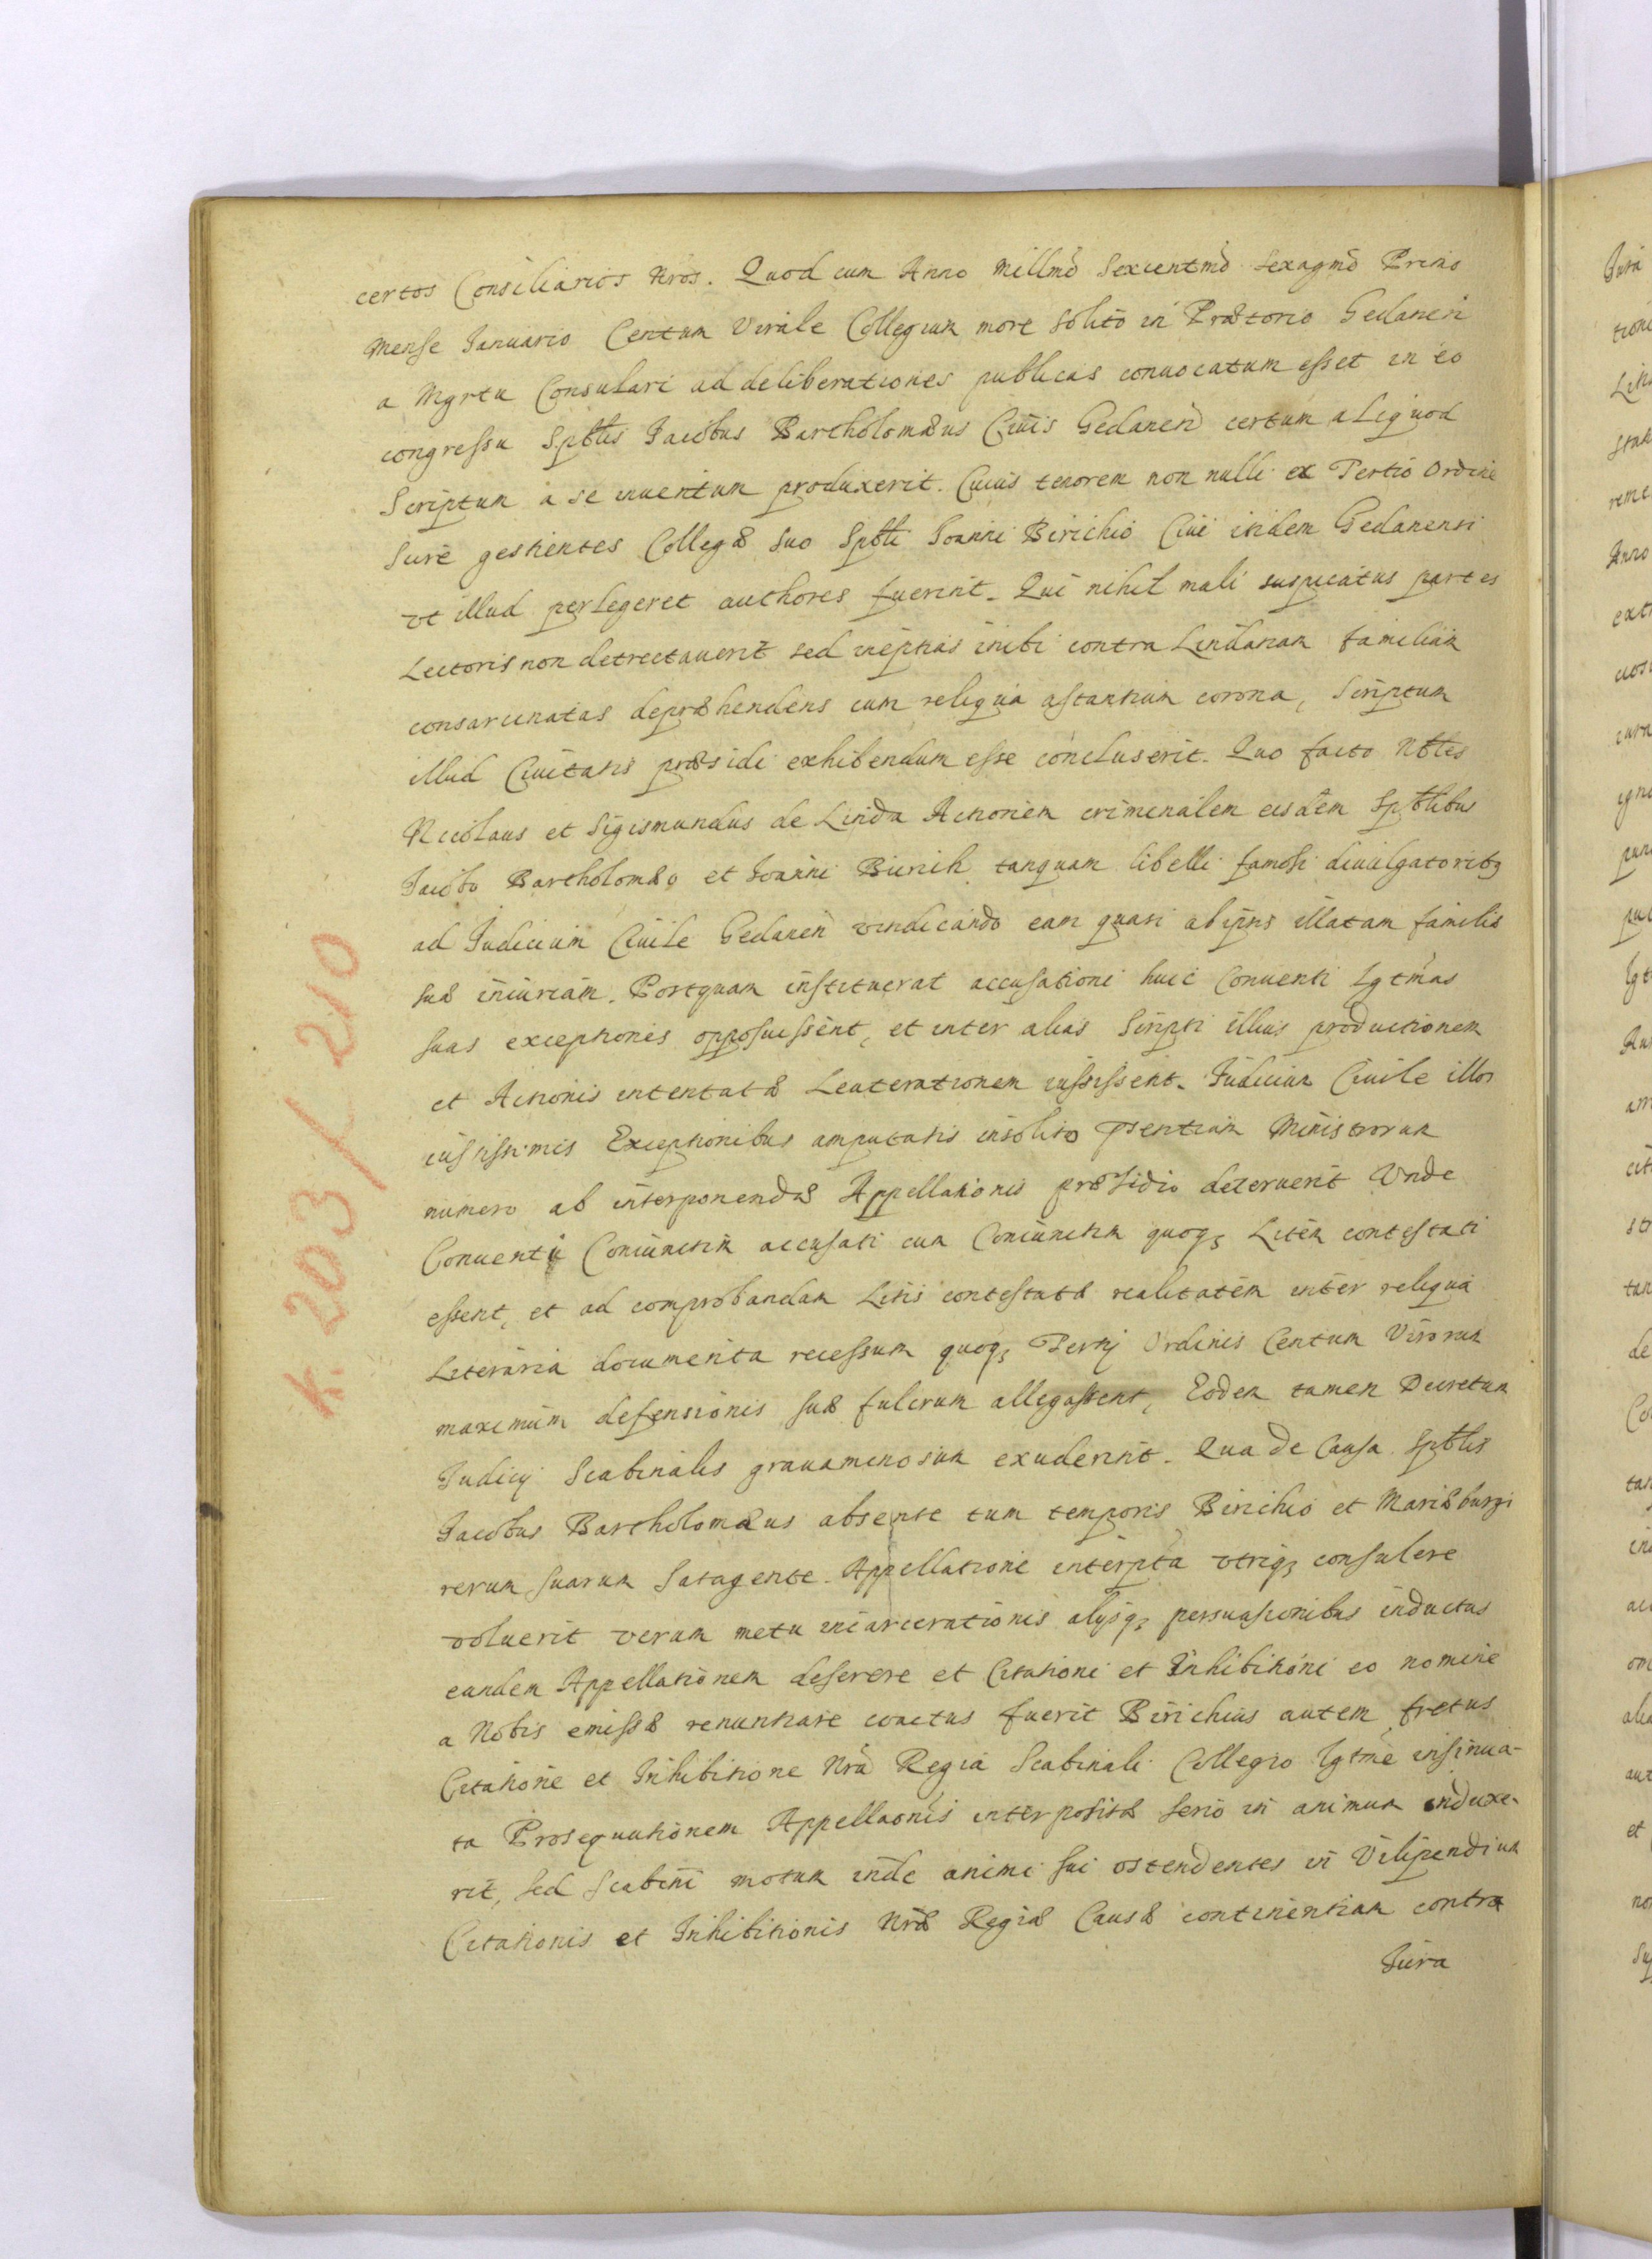 certos Consiliarios Nros. Quod cum Anno Millmo Sexcentmo Sexagmo Primo
Mense Januario Centum Virale Collegium more solito in Prætorio Gedanen
a Mgrtu Consulari ad deliberationes publicas conuocatum esset in eo
congressu Spbtlis Jacobus Bartholomæus Ciuis Gedanen certum aliquod
Scriptum a se inuentum produxerit. Cuius tenorem non nulli ex Tertio Ordine
scire gestientes Collegæ suo Spbtli Joanni Birichio Ciui itidem Gedanensi
vt illud perlegeret authores fuerint. Qui nihil mali suspicatus partes
Lectoris non detrectauerit sed ineptias inibi contra Lindanam familiam
consarcinatas depræhendens cum reliqua astantium corona, Scriptum
illud Ciuitatis præsidi exhibendum esse concluserit. Quo facto Nbtles
Nicolaus et Sigismundus de Linda Actionem criminalem eisdem Spbtlibus
Jacobo Bartholomæo et Joanni Biirich tanquam libelli famosi diuulgatoribq
ad Judicium Ciuile Gedanen vindicando eam quasi ab ipsis illatam familiæ
suæ iniuriam. Postquam instituerat accusationi huic Conuenti Lgtmas
suas exceptiones opposuissent, et inter alias Scripti illius productionem
et Actionis intentatæ Leuterationem iussissent. Judicium Ciuile illor
iustissimis Exceptionibus amputatis insolito psentiam Ministrorum
numero ab interponendæ Appellationis præsidio deteruerit Vnde
Conuenti Coniunctim accusati cum Coniunctim quoq Litem contestati
essent, et ad comprobandam Litis contestatæ realitatem inter reliqua
Literaria documenta recessum quoq Tertij Ordinis Centum Virorum
maximum defensionis suæ fulcrum allegassent, Eodem tamen Decretum
Judicij Scabinalis grauaminosum exuderint. Qua de Causa Spbtlis
Jacobus Bartholomæus absente tum temporis Birichio et Mariæburgi
rerum suarum satagente. Appellatione interpta vtriq consulere
voluerit verum metu incarcerationis alijsq persuasionibus inductus
eandem Appellationem deserere et Citationi et Inhibitioni eo nomine
a Nobis emissæ renuntiare coactus fuerit Birichius autem fretus
Citatione et Inhibitione Nra Regia Scabinali Collegio Lgtme insinua-
ta Prosequutionem Appellaonis interpositæ serio in animum induxe-
rit, sed Scabini motum inde animi sui ostendentes in Vilipendium
Citationis et Inhibitionis Nræ Regiæ Causæ continentiam contra
Jura
K. 203/210